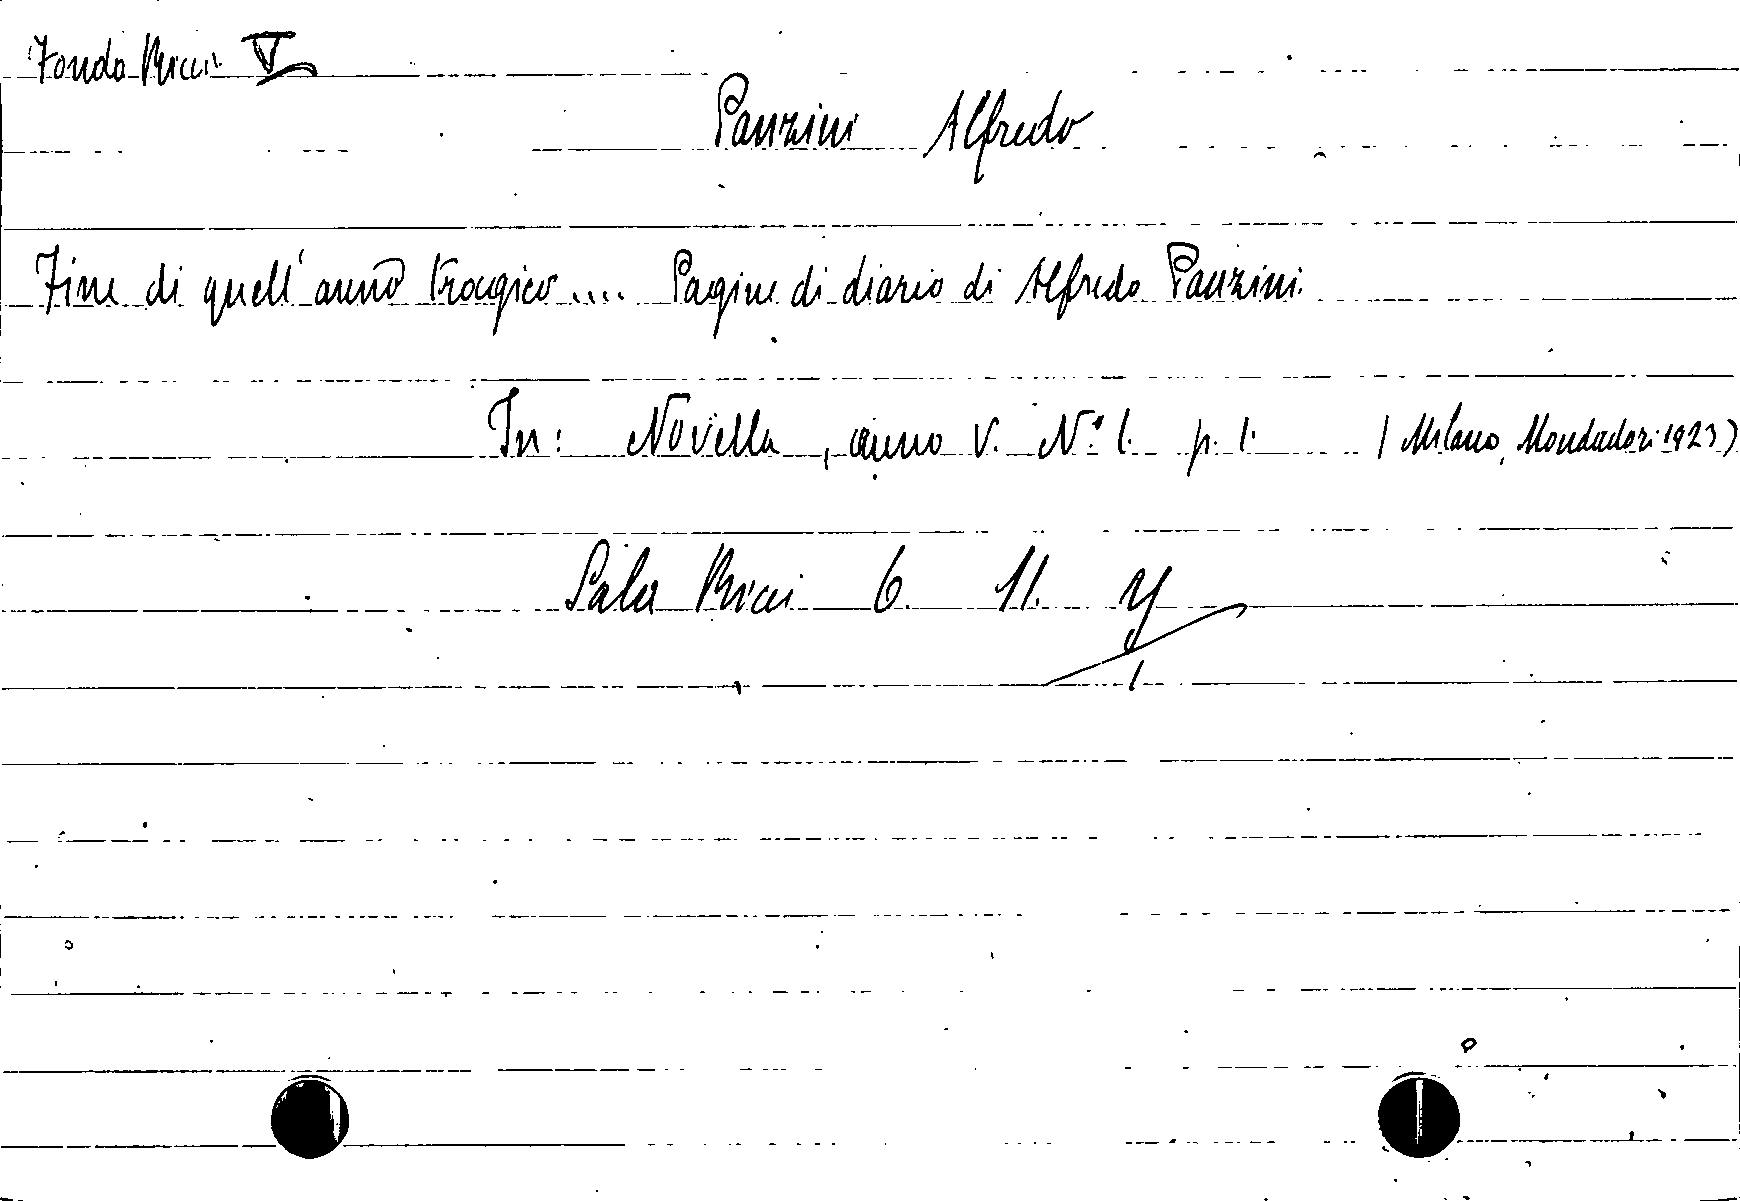 Fondo Ricci V
Panzini Alfredo
Fine di quell'anno tragico.... Pagine di diario di Alfredo Panzini.
In: Novella, anno V. N.° 1. p. 1. (Milano, Mondadori 1923)
Sala Ricci 6. 11. Y
1